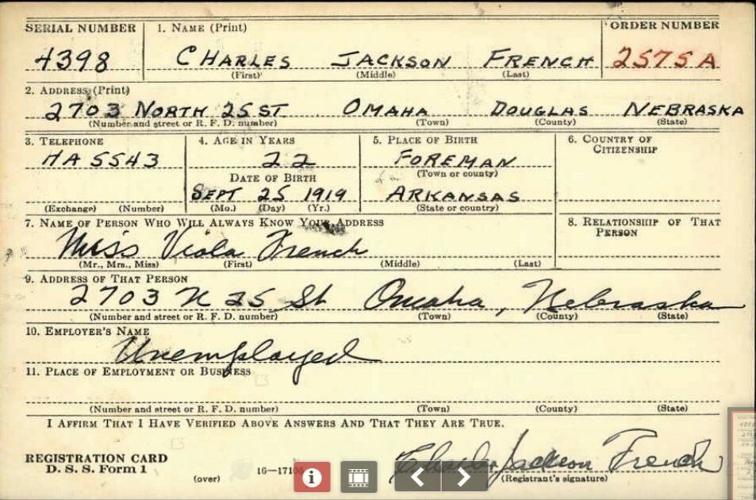 SERIAL NUMBER 1. NAME (Print) ORDER NUMBER
4398 CHARLES JACKSON FRENCH 2575A
(First) (Middle) (Last)
2. ADDRESS (Print)
2703 NORTH 25 ST OMAHA DOUGLAS NEBRASKA
(Number and street or R. F. D. number) (Town) (County) (State)
3. TELEPHONE 4. AGE IN YEARS 5. PLACE OF BIRTH 6. COUNTRY OF
CITIZENSHIP
HA 5543 22 FOREMAN
(Town or county)
DATE OF BIRTH
SEPT 25 1919 ARKANSAS
(Exchange) (Number) (Mo.) (Day) (Yr.) (State or country)
7. NAME OF PERSON WHO WILL ALWAYS KNOW YOUR ADDRESS 8. RELATIONSHIP OF THAT
PERSON
Miss Viola French
(Mr., Mrs., Miss) (First) (Middle) (Last)
9. ADDRESS OF THAT PERSON
2703 N 25 St Omaha, Nebraska
(Number and street or R. F. D. number) (Town) (County) (State)
10. EMPLOYER'S NAME
Unemployed
11. PLACE OF EMPLOYMENT OR BUSINESS
(Number and street or R. F. D. number) (Town) (County) (State)
I AFFIRM THAT I HAVE VERIFIED ABOVE ANSWERS AND THAT THEY ARE TRUE.
REGISTRATION CARD
D. S. S. Form 1 (over) Charles Jackson French
(Registrant's signature)